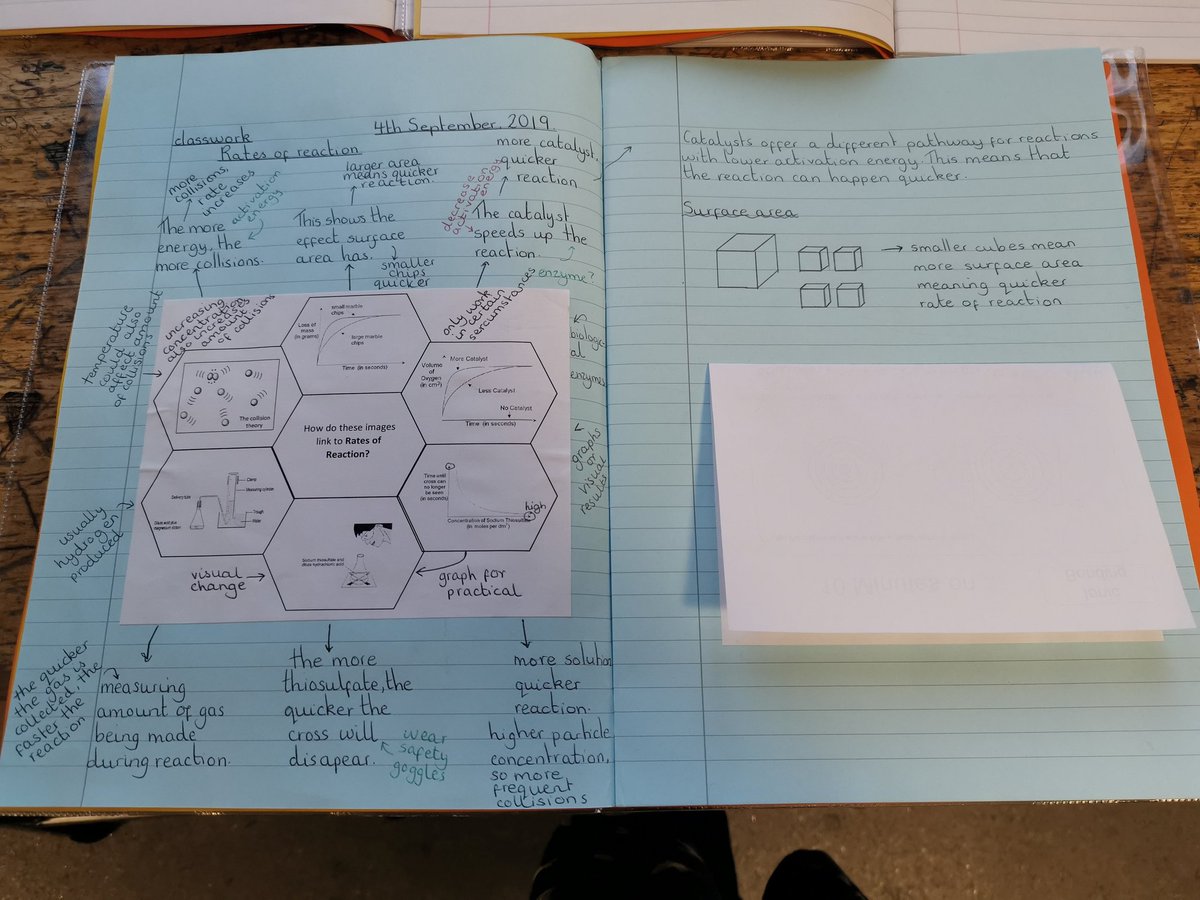 4th September, 2019
classwork
Rates of reaction
more collisions,
rate
increases
activation
energy
The more
energy, the
more collisions.
larger area
means quicker
reaction.
This shows the
effect surface
area has.
smaller
chips
quicker
more catalyst,
quicker
reaction
decrease
activation
energy
The catalyst
speeds up the
reaction.
enzyme?
biologic
al
enzymes
temperature
could also
affect amount
of collisions
increasing
concentration
also increases
amount
of collisions
only work
in certain
sercumstances
small marble
chips
Loss of
mass
(in grams)
large marble
chips
Time (in seconds)
More Catalyst
Volume
of
Oxygen
(in cm³)
Less Catalyst
No Catalyst
Time (in seconds)
The collision
theory
How do these images
link to Rates of
Reaction?
graphs
or
visual
results
usually
hydrogen
produced
Delivery tube
Clamp
Measuring cylinder
Trough
Water
Time until
cross can
no longer
be seen
(in seconds)
high
Concentration of Sodium Thiosulfate
(in moles per dm³)
Sodium thiosulfate and
dilute hydrochloric acid
visual
change
graph for
practical
the quicker
the gas is
collected, the
faster the
reaction
measuring
amount of gas
being made
during reaction.
the more
thiosulfate, the
quicker the
cross will
disapear.
wear
safety
goggles
more solution
quicker
reaction.
higher particle
concentration,
so more
frequent
collisions
Catalysts offer a different pathway for reactions
with lower activation energy. This means that
the reaction can happen quicker.
Surface area
smaller cubes mean
more surface area
meaning quicker
rate of reaction
10 Minutes on
Ionic
Bonding